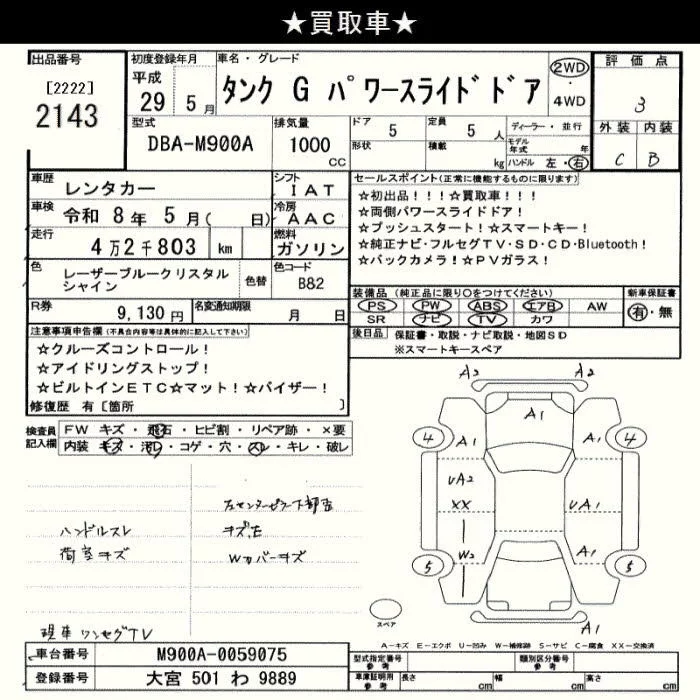 ★買取車★
出品番号
[2222]
2143
初度登録年月
平成
29 5月
車名・グレード
タンク G パワースライドドア
2WD
・
4WD
評価点
3
外装 内装
C B
型式
DBA-M900A
排気量
1000
CC
ドア 5
定員 5 人
形状
積載 kg
ディーラー・並行
モデル年式 年
ハンドル 左・右
車歴 レンタカー
シフト IAT
車検 令和 8年 5月( 日)
冷房 AAC
走行 4万2千803 km
燃料 ガソリン
色 レーザーブルークリスタル
シャイン
色替
色コード B82
R券 9,130円
名変通知期限 月 日
セールスポイント(正常に機能するものに限ります)
☆初出品!!!☆買取車!!!
☆両側パワースライドドア!
☆プッシュスタート!☆スマートキー!
☆純正ナビ・フルセグTV・SD・CD・Bluetooth!
☆バックカメラ!☆PVガラス!
装備品 (純正品に限り○をつけてください)
PS PW ABS エアB AW
SR ナビ TV カワ
新車保証書
有・無
後日品 保証書・取説・ナビ取説・地図SD
※スマートキースペア
注意事項申告欄(不具合内容等は具体的に記入して下さい)
☆クルーズコントロール!
☆アイドリングストップ!
☆ビルトインETC☆マット!☆バイザー!
修復歴 有〔箇所 〕
検査員
記入欄
FW キズ・飛石・ヒビ割・リペア跡・×要
内装 キズ・汚レ・コゲ・穴・スレ・キレ・破レ
ハンドルスレ
荷室キズ
左センターピラー下部
キズ
Wカバーキズ
現車ワンセグTV
A2 A2
A1
4 A1 A1 4
UA2
XX
UA1
W2
A1
5 5
A1
スペア
A=キズ E=エクボ U=凹み W=補修跡 S=サビ C=腐食 XX=交換済
車台番号 M900A-0059075
登録番号 大宮 501 わ 9889
型式指定番号
参考
類別区分番号
参考
車庫証明用
参考
長さ cm
幅 cm
高さ cm